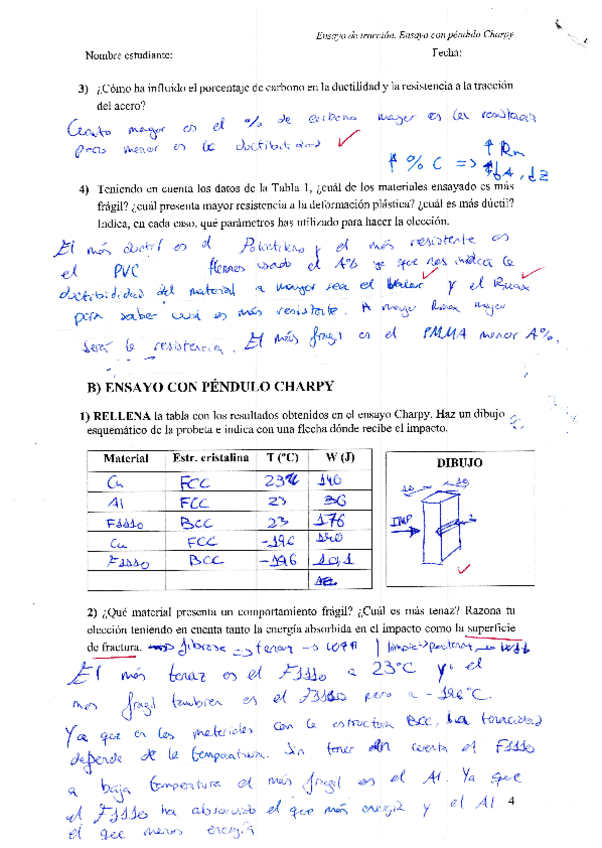 Ensayo de tracción. Ensayo con péndulo Charpy
Nombre estudiante: Fecha:
3) ¿Cómo ha influido el porcentaje de carbono en la ductilidad y la resistencia a la tracción
del acero?
Cuanto mayor es el % de carbono mayor es la resistencia
pero menor es la ductibilidad
↑ % C => ↑ Rm
4) Teniendo en cuenta los datos de la Tabla 1, ¿cuál de los materiales ensayado es más
frágil? ¿cuál presenta mayor resistencia a la deformación plástica? ¿cuál es más dúctil?
Indica, en cada caso, qué parámetros has utilizado para hacer la elección.
El más ductil es el y el más resistente es
el PVC Hemos usado el A% ya que nos indica la
ductibilidad del material a mayor sea el y el Rmax
para saber cual es más resistente. A mayor Rmax mayor
será la resistencia. El más fragil es el PMMA menor A%.
B) ENSAYO CON PÉNDULO CHARPY
1) RELLENA la tabla con los resultados obtenidos en el ensayo Charpy. Haz un dibujo
esquemático de la probeta e indica con una flecha dónde recibe el impacto.
Material Estr. cristalina T (ºC) W (J)
Cu FCC 23 146
Al FCC 23 36
F1110 BCC 23 176
Cu FCC -196
F1110 BCC -196 10,1
DIBUJO
10 10
IMP 2
2) ¿Qué material presenta un comportamiento frágil? ¿Cuál es más tenaz? Razona tu
elección teniendo en cuenta tanto la energía absorbida en el impacto como la superficie
de fractura. fibrosa => tenaz
El más tenaz es el F1110 a 23ºC y el
mas fragil tambien es el F1110 pero a -196ºC.
Ya que en los materiales con la estructura BCC, la tenacidad
depende de la temperatura. Sin tener en cuenta el F1110
a baja temperatura el más fragil es el Al. Ya que
el F1110 ha absorvido el que más energía y el Al
el que menos energía
4